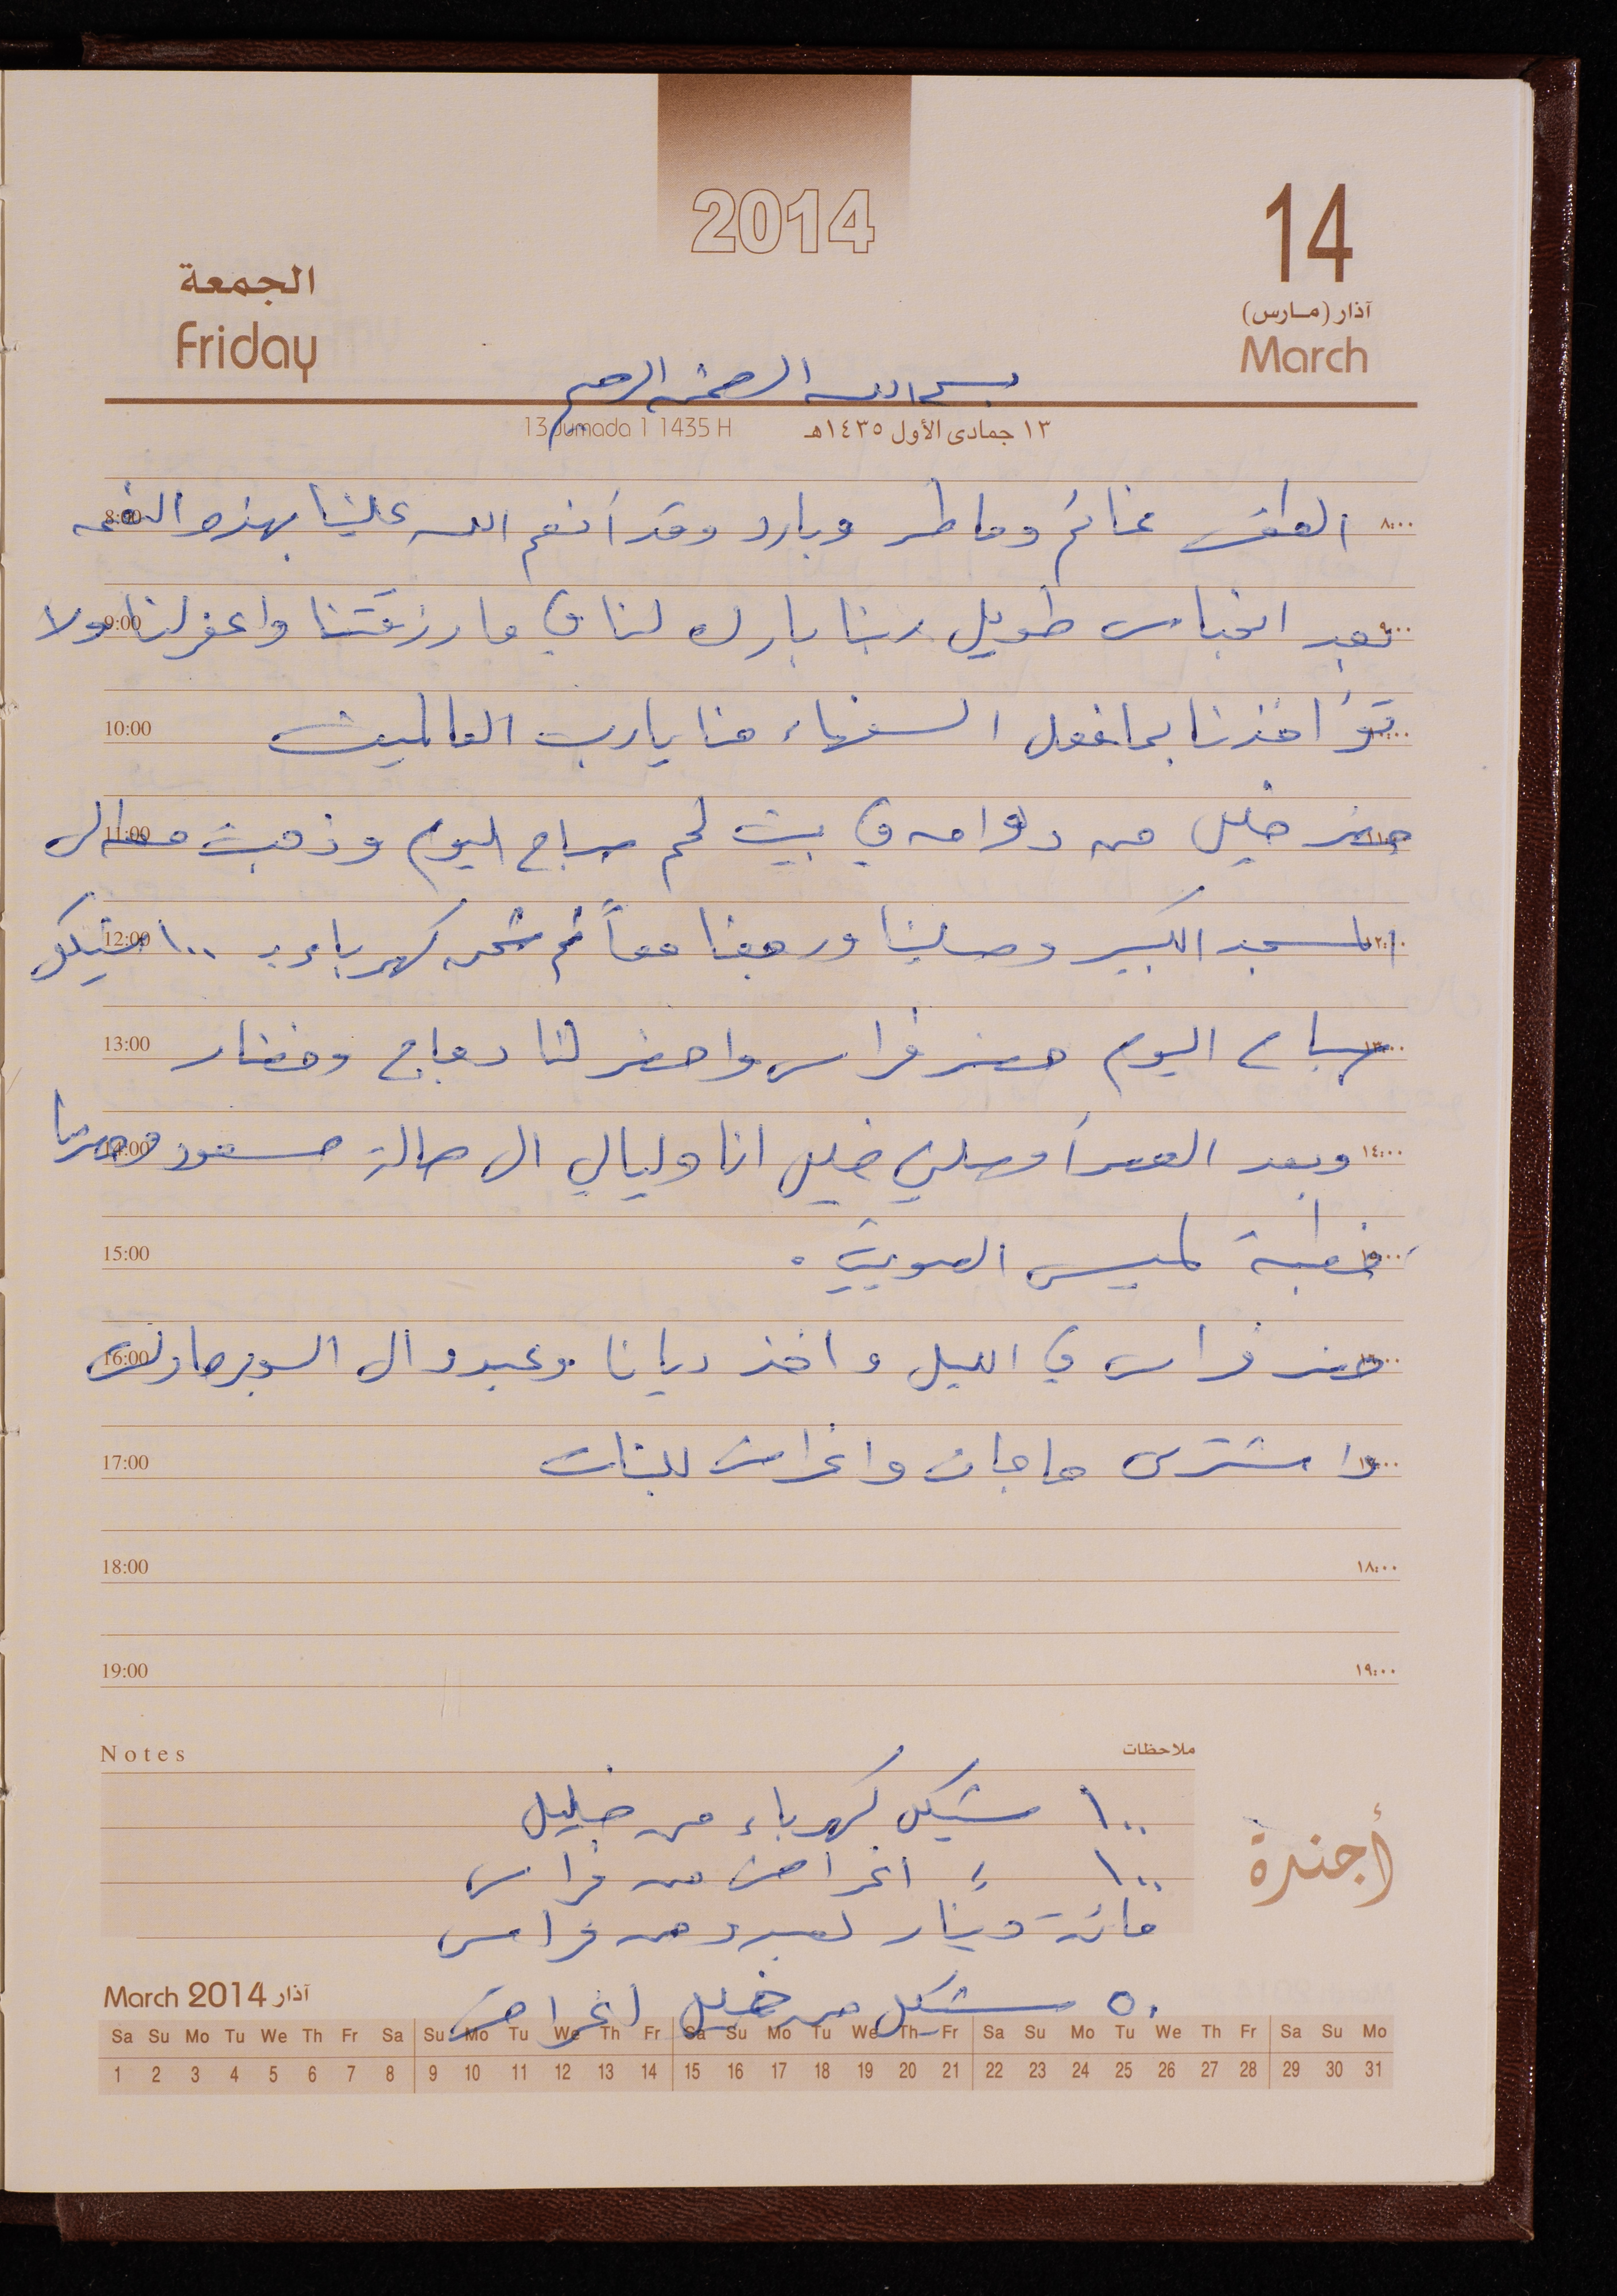 2014
14
آذار (مارس)
March
الجمعة
Friday
بسم الله الرحمن الرحيم
13 Jumada 1 1435 H ١٣ جمادى الأول ١٤٣٥هـ
8:00 ٨:٠٠ الطقس غائم وماطر وبارد وقد أنعم الله علينا بهذه النعمه
9:00 ٩:٠٠ بعد انحباس طويل ربنا بارك لنا في ما رزقتنا واغفر لنا ولا
10:00 ١٠:٠٠ تؤاخذنا بما فعل السفهاء منا يا رب العالمين
11:00 ١١:٠٠ حضر خليل من دوامه في بيت لحم صباح اليوم وذهبت معه الى
12:00 ١٢:٠٠ المسجد الكبير وصلينا ورجعنا معاً ثم شحن كهرباء بـ ١٠٠ شيكل
13:00 ١٣:٠٠ صباح اليوم حضر فراس واحضر لنا دجاج وخضار
14:00 ١٤:٠٠ وبعد العصر أوصلني خليل انا وليالي الى صالة مسعود وحضرنا
15:00 ١٥:٠٠ خطبة لميس
16:00 ١٦:٠٠ حضر فراس في الليل واخذ ديانا وعبد والى السوبر ماركت
17:00 ١٧:٠٠ واشترى حاجات واغراض للبنات
18:00 ١٨:٠٠
19:00 ١٩:٠٠
Notes ملاحظات
١٠٠ شيكل كهرباء من خليل
١٠٠ = اغراض من فراس
مائة دينار لعبد من فراس
٥٠ شيكل من خليل اغراض
أجندة
March 2014 آذار
Sa Su Mo Tu We Th Fr Sa Su Mo Tu We Th Fr Sa Su Mo Tu We Th Fr Sa Su Mo Tu We Th Fr Sa Su Mo
1 2 3 4 5 6 7 8 9 10 11 12 13 14 15 16 17 18 19 20 21 22 23 24 25 26 27 28 29 30 31